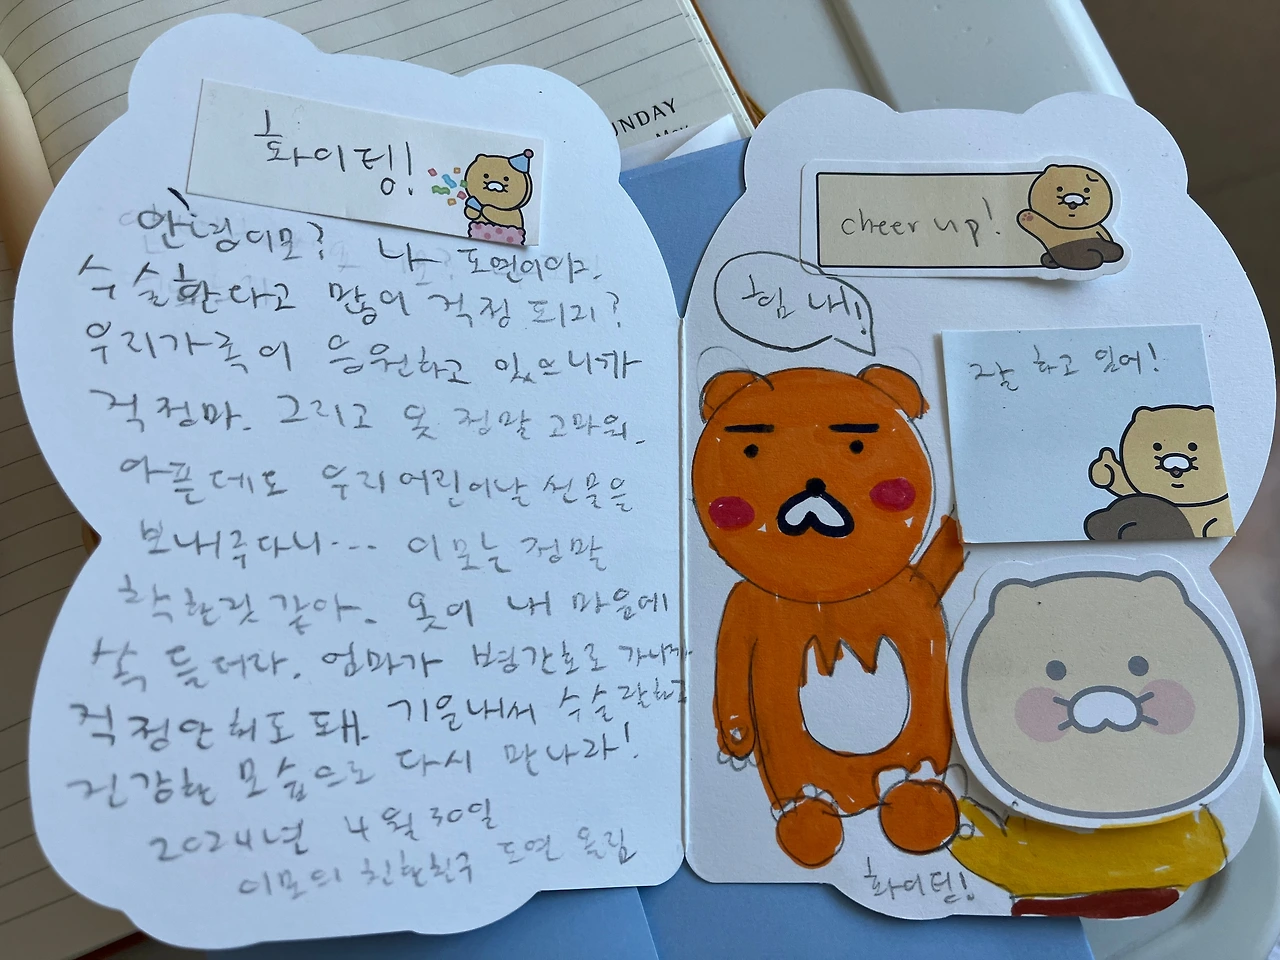 화이팅!
안녕 이모? 나 도연이야.
수술한다고 많이 걱정 되지?
우리가족이 응원하고 있으니까
걱정마. 그리고 옷 정말 고마워.
아픈데도 우리 어린이날 선물을
보내주다니... 이모는 정말
착한것 같아. 옷이 내 마음에
쏙 들더라. 엄마가 병간호로 가니까
걱정안해도 돼 기운내서 수술 잘하고
건강한 모습으로 다시 만나자!
2024년 4월 30일
이모의 친한친구 도연 올림
SUNDAY
May
cheer up!
힘 내!
잘 하고 있어!
화이팅!